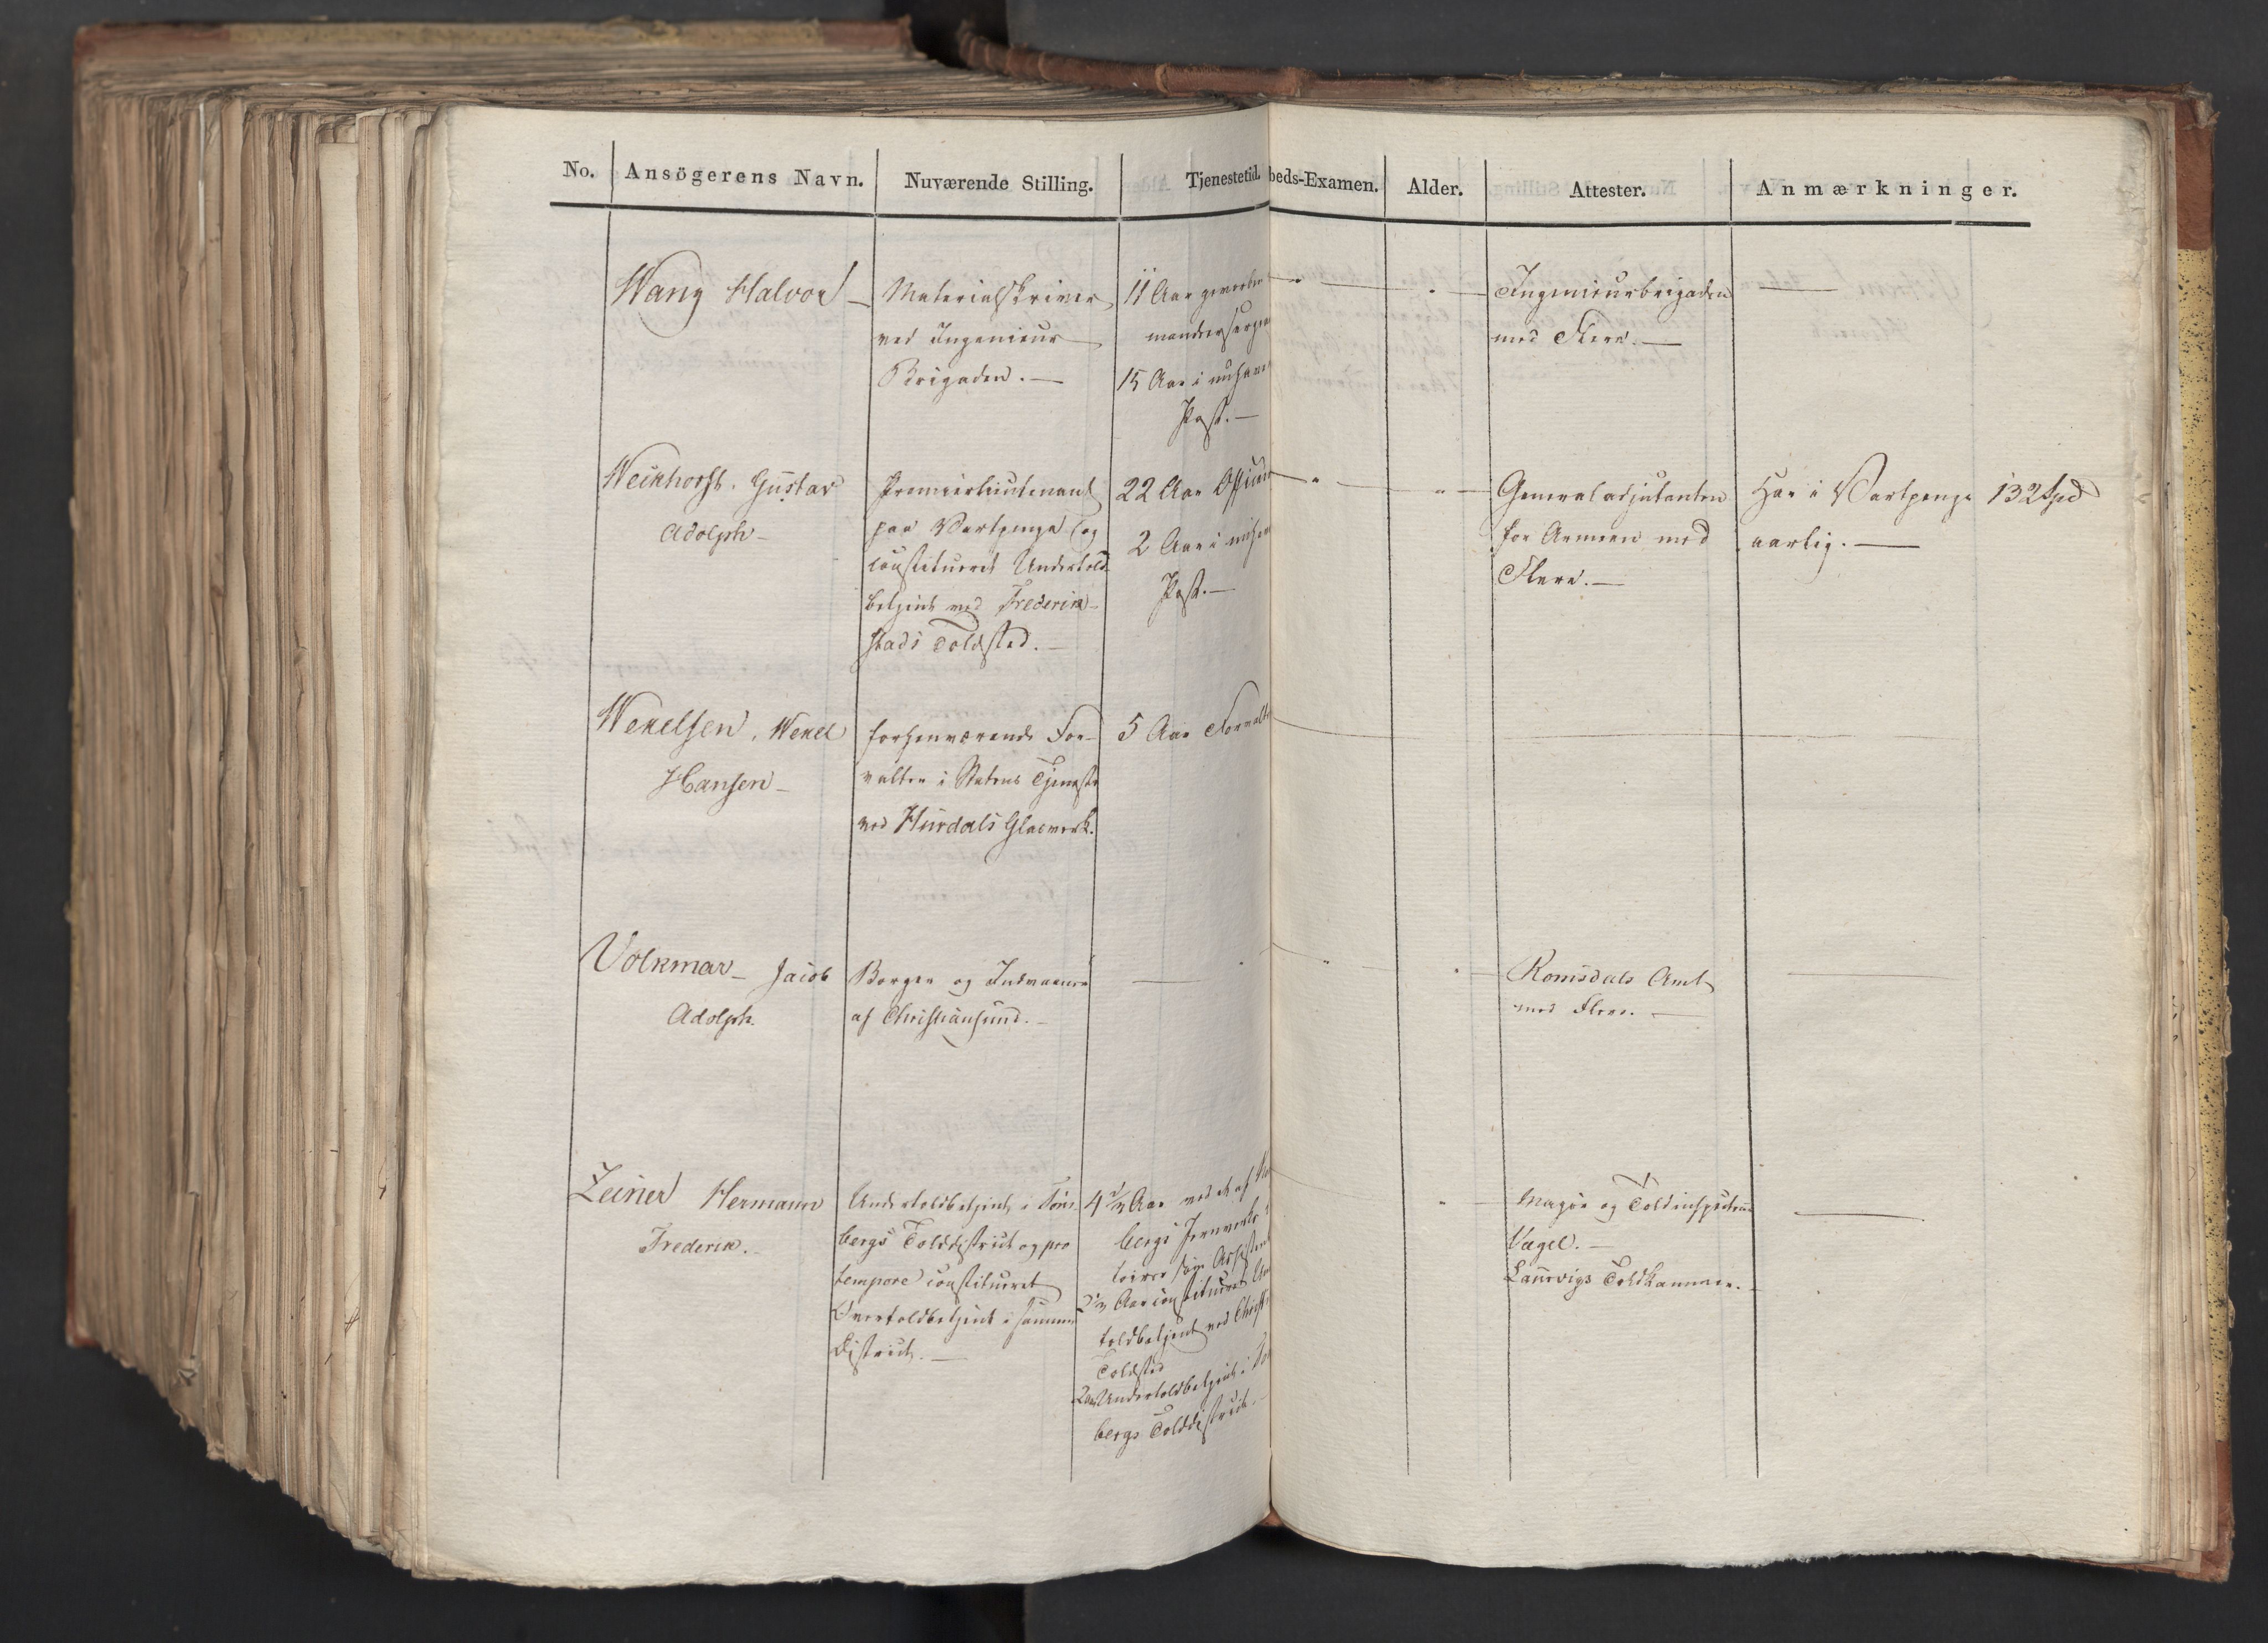 No. Ansögerens Navn. Nuværende Stilling. Tjenestetid. beds-Examen. Alder. Attester. Anmærkninger.
Wang Halvor — Materialskriver 11 Aar — " — " — Ingenieurbrigaden —
ved Ingenieur
med Flere. —
Brigaden. —
15 Aar i
Post. —
Weinhorst. Gustav Premierlieutenant 22 Aar — " — " — Generaladjutanten Har i Vartpenge 132 Spd
Adolph — paa Vartpenge (og 2 Aar i for Armeen med aarlig. —
constitueret Undertold
Flere. —
betjent ved Frederik- Post. —
stads Toldsted. —
Wexelsen, Wexel forhenværende For- 5 Aar
Hansen — valter i Statens Tjeneste
ved Hurdals Glasværk.
Volkmar — Jacob Borger og Indvaaner — " " — Romsdals Amt —
Adolph. af Christiansund. — med Flere. —
Zeiner Hermann Undertoldbetjent i Töns- 4 1/2 Aar ved " — Major og Toldinspecteur —
Frederik. — bergs Tolddistrict og pro bergs Jernværks Vagel. —
tempore constitueret som Assistent Laurvigs Toldkammer. —
Overtoldbetjent i samme Aar constitueret
District. — toldbetjent ved
Toldsted
2 Aar Undertoldbetjent i
bergs Tolddistrict. —